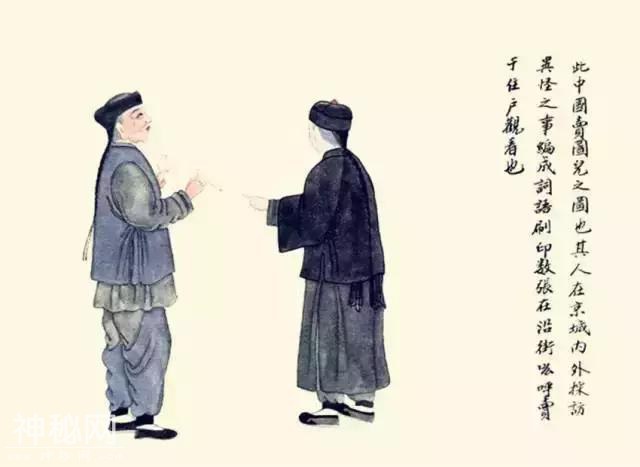 此中國賣圖兒之圖也其人在京城內外採訪
異怪之事編成詞語刷印數張在沿街吆呼賣
于住戶觀看也
神秘网